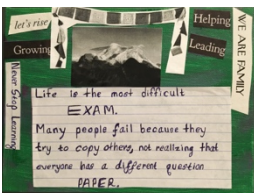 let's rise
Growing
Helping
Leading
WE ARE FAMILY
Never Stop Learning
Life is the most difficult
EXAM.
Many people fail because they
try to copy others, not realizing that
everyone has a different question
PAPER.